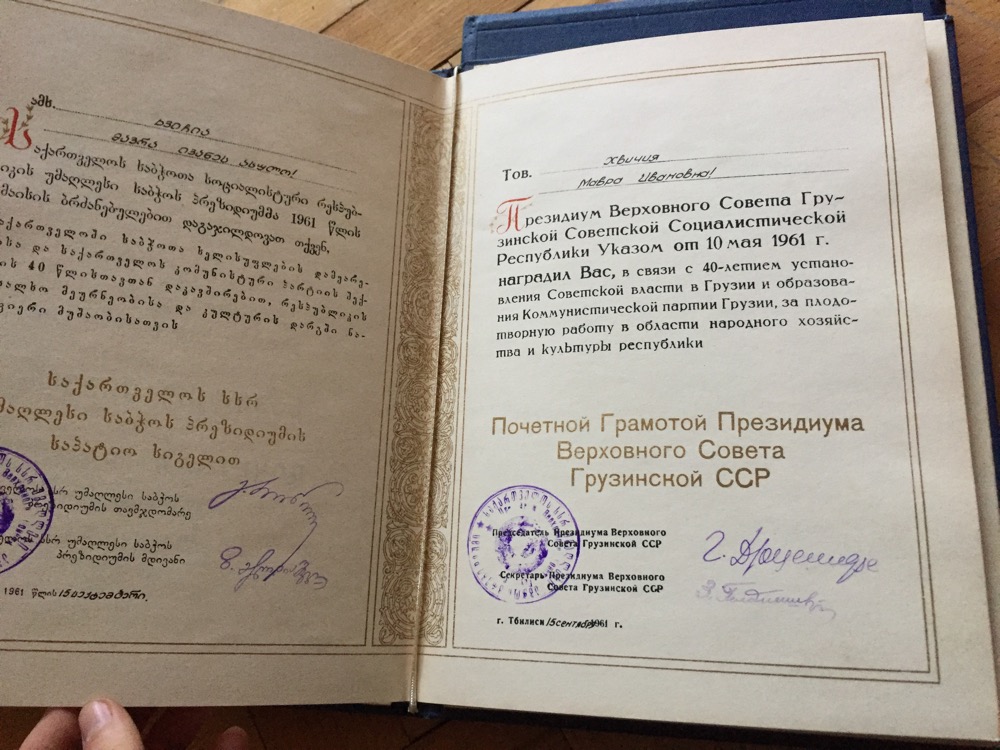 ამხ.
ხვიჩია
მავრა ივანეს ასულო!
საქართველოს საბჭოთა სოციალისტური რესპუბ-
ლიკის უმაღლესი საბჭოს პრეზიდიუმმა 1961 წლის
მაისის ბრძანებულებით დაგაჯილდოვათ თქვენ,
საქართველოში საბჭოთა ხელისუფლების დამყარე-
ბისა და საქართველოს კომუნისტური პარტიის შექ-
ის 40 წლისთავთან დაკავშირებით, რესპუბლიკის
ხალხო მეურნეობისა და კულტურის დარგში ნა-
ყოფიერი მუშაობისათვის
საქართველოს სსრ
უმაღლესი საბჭოს პრეზიდიუმის
საპატიო სიგელით
სსრ უმაღლესი საბჭოს
პრეზიდიუმის თავმჯდომარე
სსრ უმაღლესი საბჭოს
პრეზიდიუმის მდივანი
1961 წლის 15 სექტემბერი.
Тов. Хвичия
Мавра Ивановна!
Президиум Верховного Совета Гру-
зинской Советской Социалистической
Республики Указом от 10 мая 1961 г.
наградил Вас, в связи с 40-летием устано-
вления Советской власти в Грузии и образова-
ния Коммунистической партии Грузии, за плодо-
творную работу в области народного хозяйс-
тва и культуры республики
Почетной Грамотой Президиума
Верховного Совета
Грузинской ССР
Председатель Президиума Верховного
Совета Грузинской ССР
Г. Дзоценидзе
Секретарь Президиума Верховного
Совета Грузинской ССР
г. Тбилиси 15 сентября 1961 г.